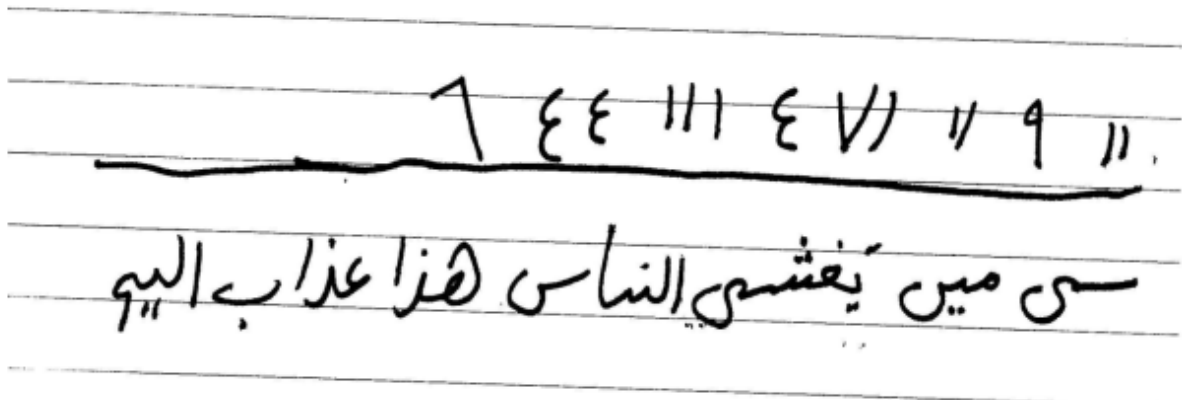 ٦ ٤٤ ١١١ ٤ ٧١ ١١ ٩ ١١
مين يغشي الناس هذا عذاب اليم